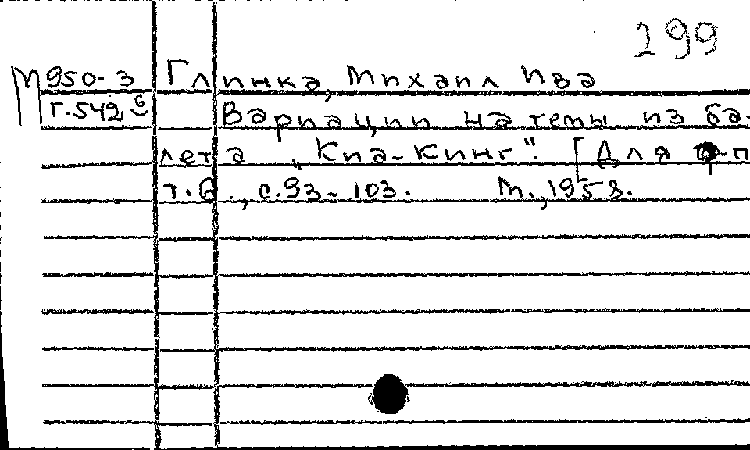 299
М 950-3 Глинка, Михаил Ива
Г.542 б Вариации на темы из ба-
лета „Киа-Кинг". [Для ф-п
т.6., с.93-103. М., 1958.